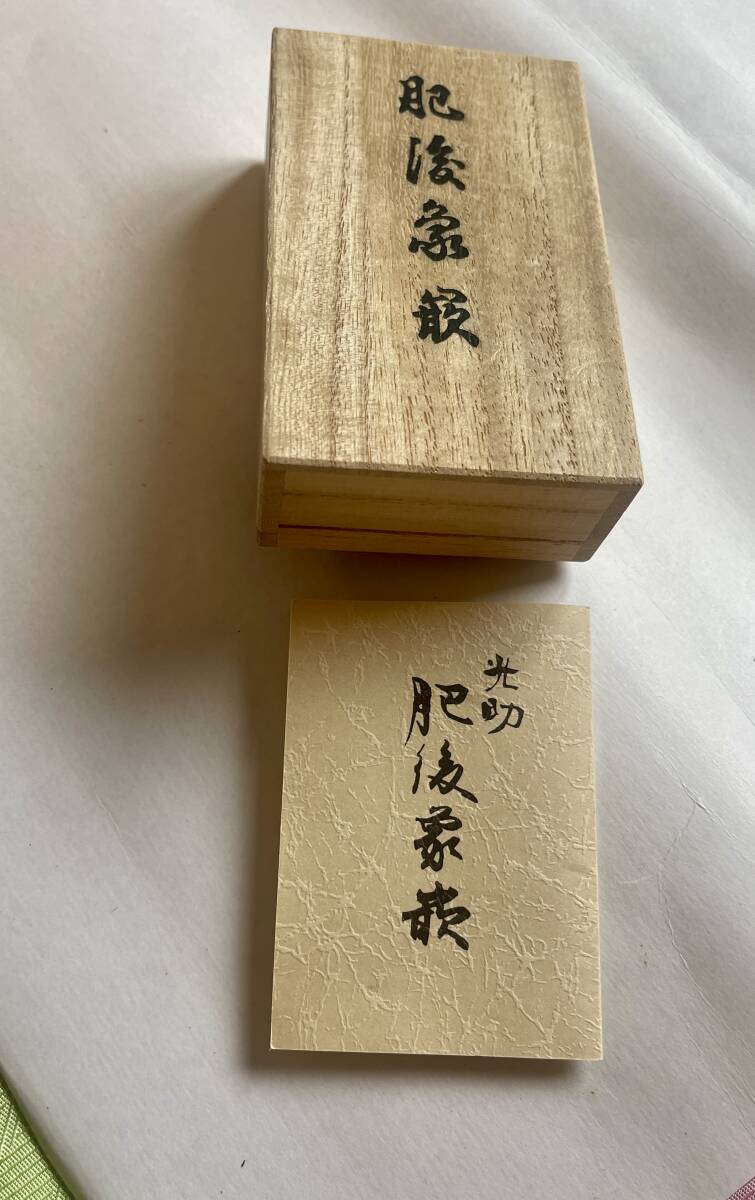 肥後象嵌
光助
肥後象嵌